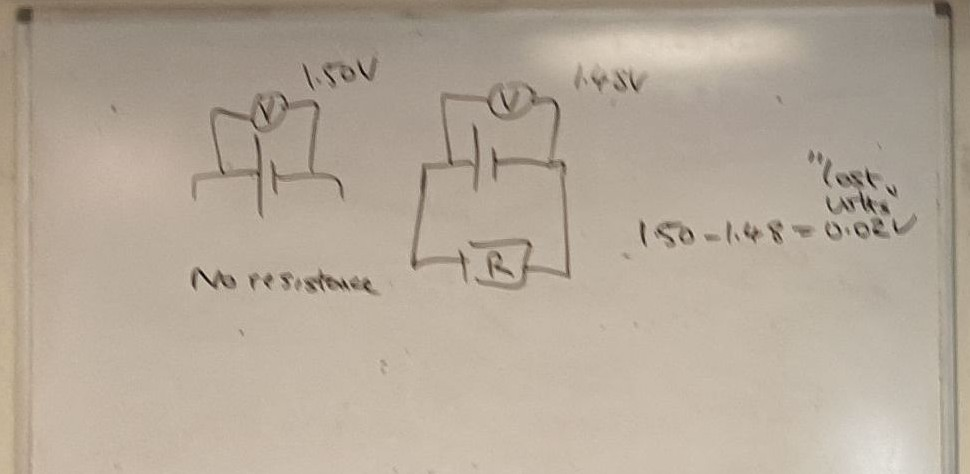 1.50V
V
No resistance
1.48V
V
R
"lost
volts"
1.50-1.48=0.02V